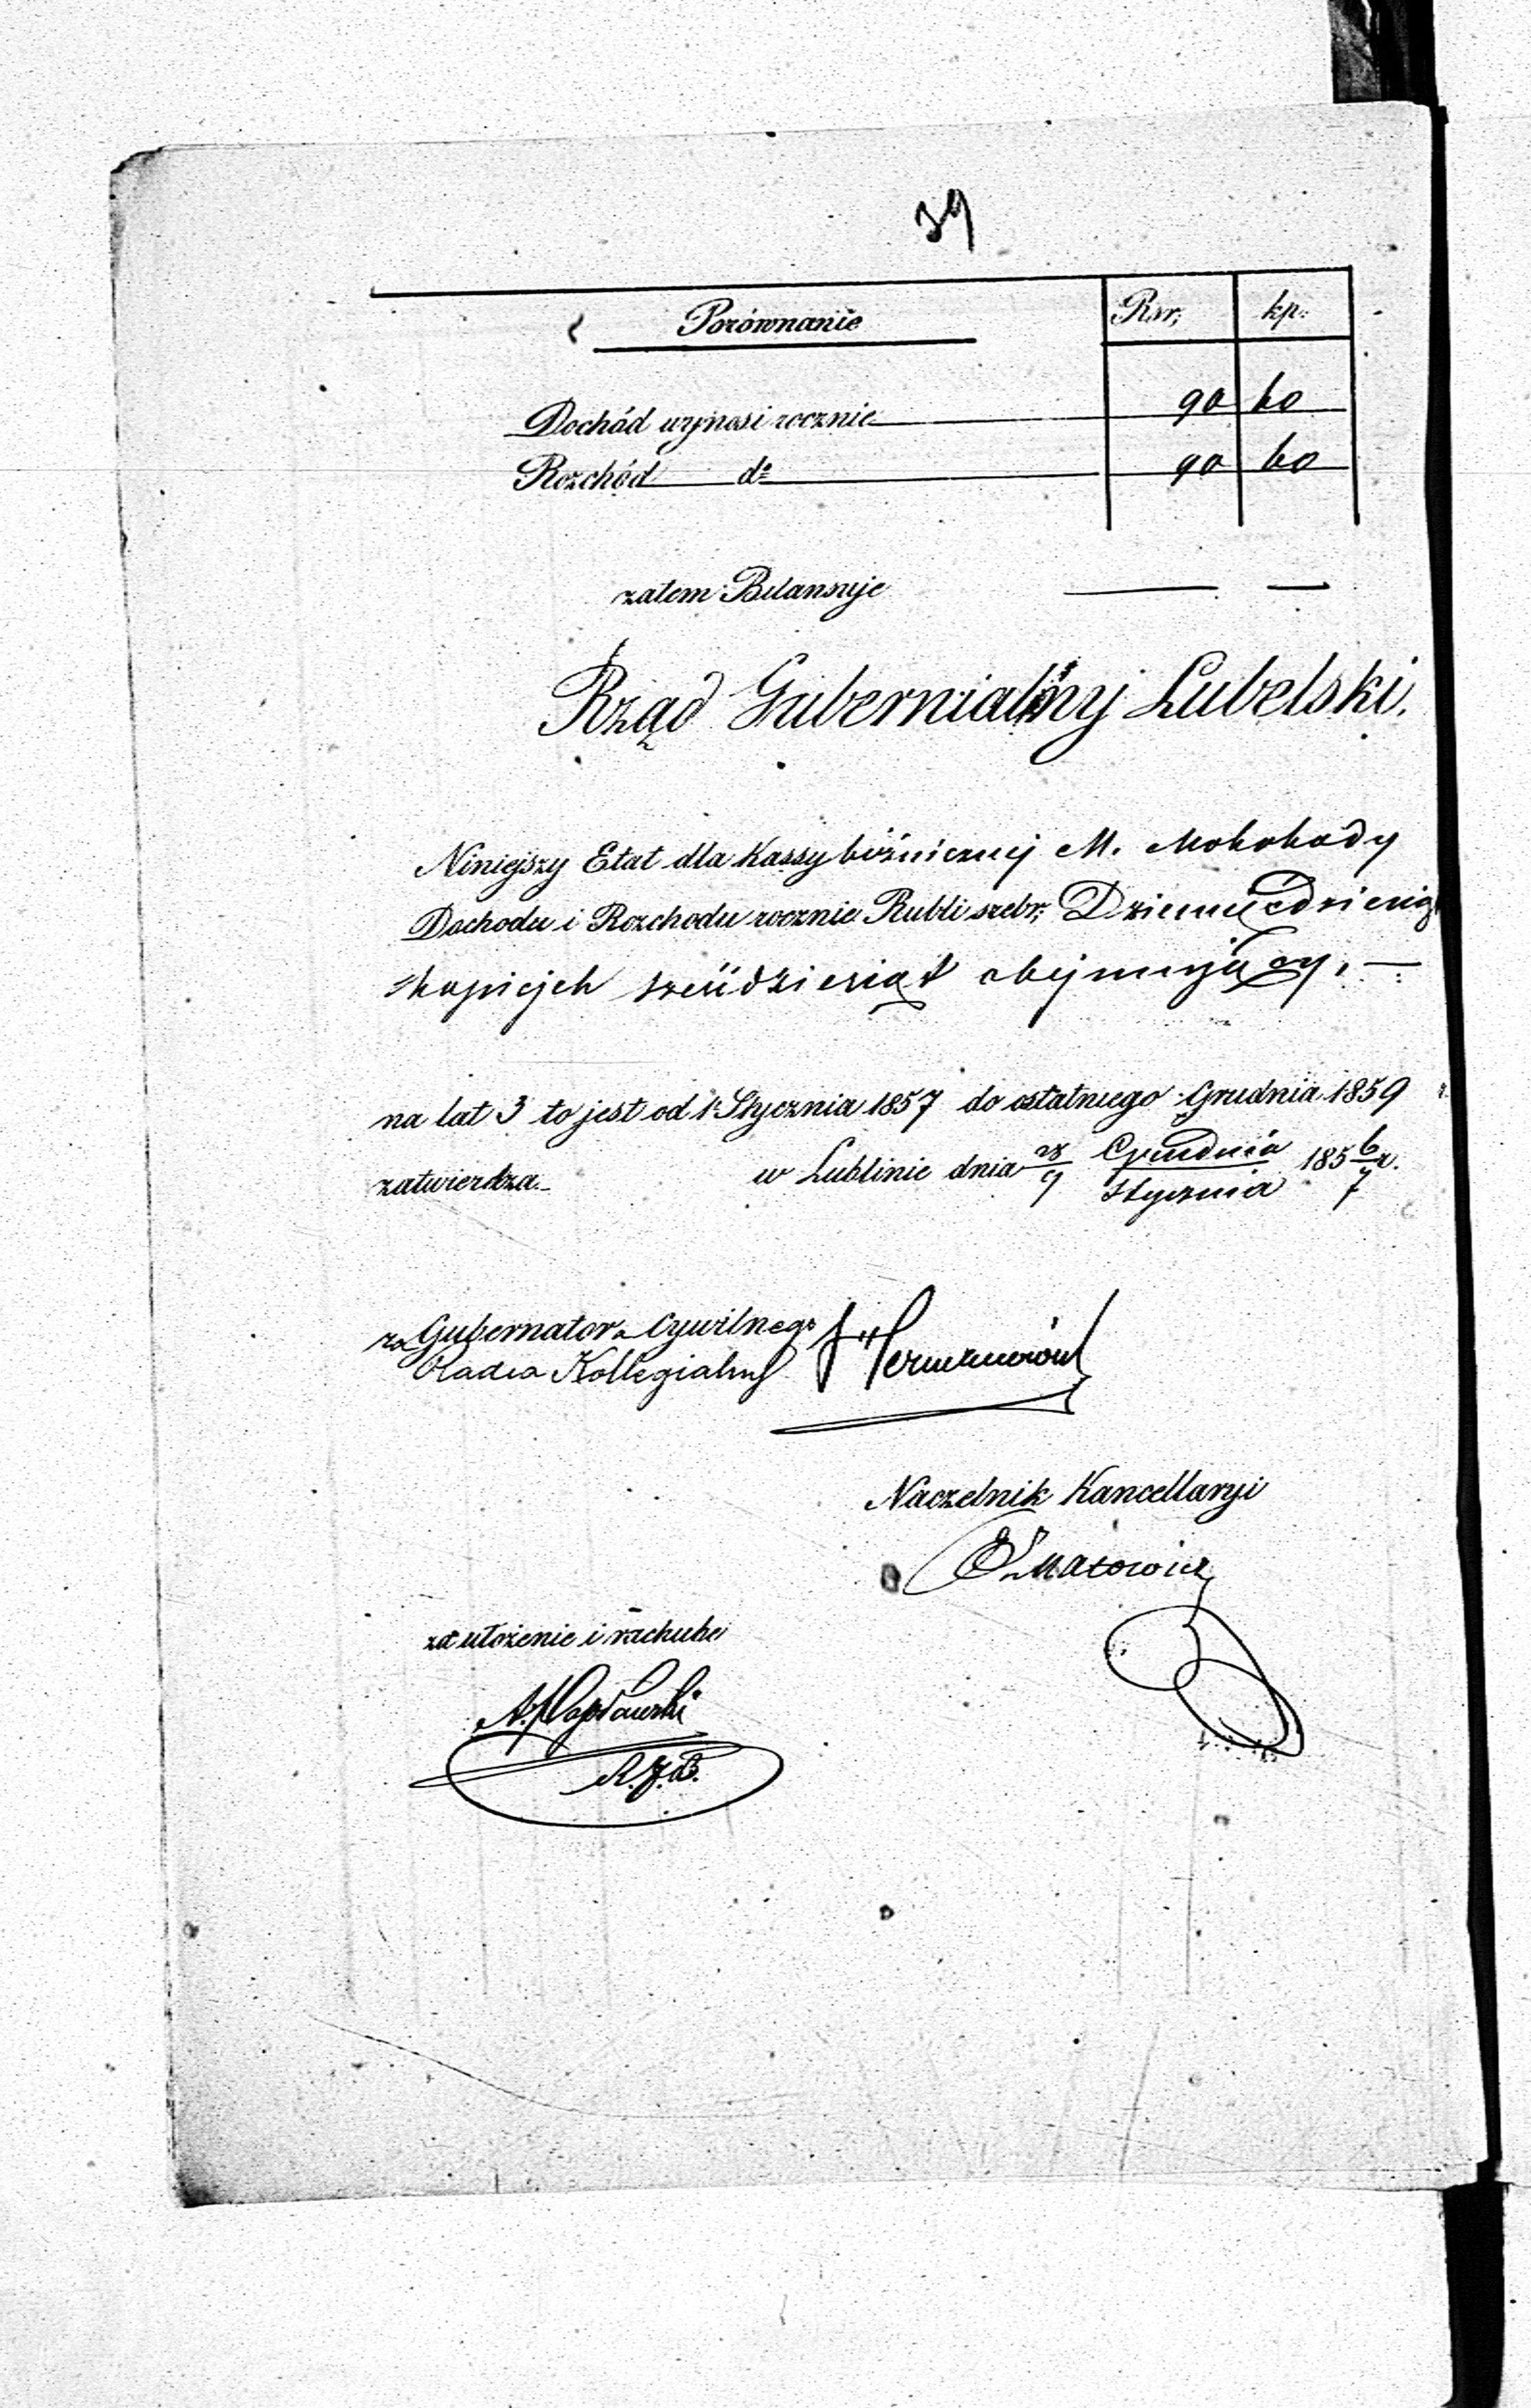 39
Porównanie Rsr; kp:
Dochód wynosi rocznie 90 60
Rozchód do 90 60
zatem Bilansuje — —
Rząd Gubernialny Lubelski.
Niniejszy Etat dla Kassy bóżnicznej M. Mokobody
Dochodu i Rozchodu rocznie Rubli srebr; Dziewięćdziesiąt
kopiejek sześćdziesiąt obejmujący. —
na lat 3 to jest od 1 Stycznia 1857 do ostatniego Grudnia 1859 r.
zatwierdza. w Lublinie dnia 28/9 Grudnia/Stycznia 1856/7 r.
za Gubernatora Cywilnego
Radca Kollegialny
Naczelnik Kancellaryi
za ułożenie i rachubę